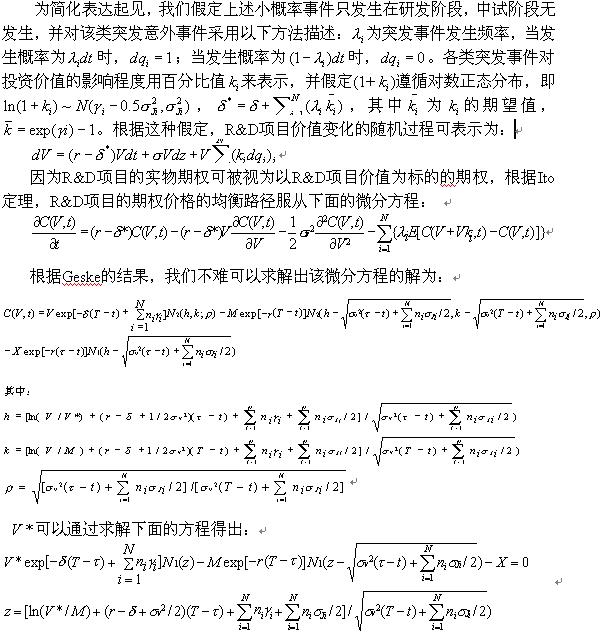 为简化表达起见，我们假定上述小概率事件只发生在研发阶段，中试阶段无
发生，并对该类突发意外事件采用以下方法描述：λᵢ为突发事件发生频率，当发
生概率为λᵢdt 时，dqᵢ = 1；当发生概率为 (1 − λᵢ)dt 时，dqᵢ = 0。各类突发事件对
投资价值的影响程度用百分比值 kᵢ来表示，并假定(1+ kᵢ)遵循对数正态分布，即
ln(1 + kᵢ) ~ N(γᵢ − 0.5σ²Jᵢ, σ²Jᵢ)，δ* = δ + ∑(λᵢ k̄ᵢ)，其中 k̄ᵢ 为 kᵢ 的期望值，
k̄ = exp(γi) − 1。根据这种假定，R&D项目价值变化的随机过程可表示为：
dV = (r − δ*)Vdt + σVdz + V∑(kᵢdqᵢ),
因为R&D项目的实物期权可被视为以R&D项目价值为标的的期权，根据Ito
定理，R&D项目的期权价格的均衡路径服从下面的微分方程：
∂C(V,t)/∂t = (r−δ*)C(V,t) − (r−δ*)V ∂C(V,t)/∂V − 1/2 σ² ∂²C(V,t)/∂V² − ∑_{i=1}^{N}{λᵢE[C(V+Vkᵢ,t) − C(V,t)]}
根据Geske的结果，我们不难可以求解出该微分方程的解为：
C(V,t) = V exp[−δ(T−t) + ∑_{i=1}^{N} nᵢγᵢ]N₂(h,k;ρ) − M exp[−r(T−t)]N₂(h − √(σv²(τ−t) + ∑_{i=1}^{N} nᵢσJᵢ/2), k − √(σv²(T−t) + ∑_{i=1}^{N} nᵢσJᵢ/2), ρ)
− X exp[−r(τ−t)]N₁(h − √(σv²(τ−t) + ∑_{i=1}^{N} nᵢσJᵢ/2))
其中:
h = [ln( V / V*) + (r − δ + 1/2σv²)(τ − t) + ∑_{i=1}^{N} nᵢγᵢ + ∑_{i=1}^{N} nᵢσJᵢ/2] / √(σv²(τ − t) + ∑_{i=1}^{N} nᵢσJᵢ/2)
k = [ln( V / M ) + (r − δ + 1/2σv²)(T − t) + ∑_{i=1}^{N} nᵢγᵢ + ∑_{i=1}^{N} nᵢσJᵢ/2] / √(σv²(T − t) + ∑_{i=1}^{N} nᵢσJᵢ/2)
ρ = √([σv²(τ − t) + ∑_{i=1}^{N} nᵢσJᵢ/2] / [σv²(T − t) + ∑_{i=1}^{N} nᵢσJᵢ/2])
V*可以通过求解下面的方程得出：
V* exp[−δ(T−τ) + ∑_{i=1}^{N} nᵢγᵢ]N₁(z) − M exp[−r(T−τ)]N₁(z − √(σv²(τ−t) + ∑_{i=1}^{N} nᵢσJᵢ/2)) − X = 0
z = [ln(V*/M) + (r − δ + σv²/2)(T−τ) + ∑_{i=1}^{N} nᵢγᵢ + ∑_{i=1}^{N} nᵢσJᵢ/2] / √(σv²(T−t) + ∑_{i=1}^{N} nᵢσJᵢ/2)